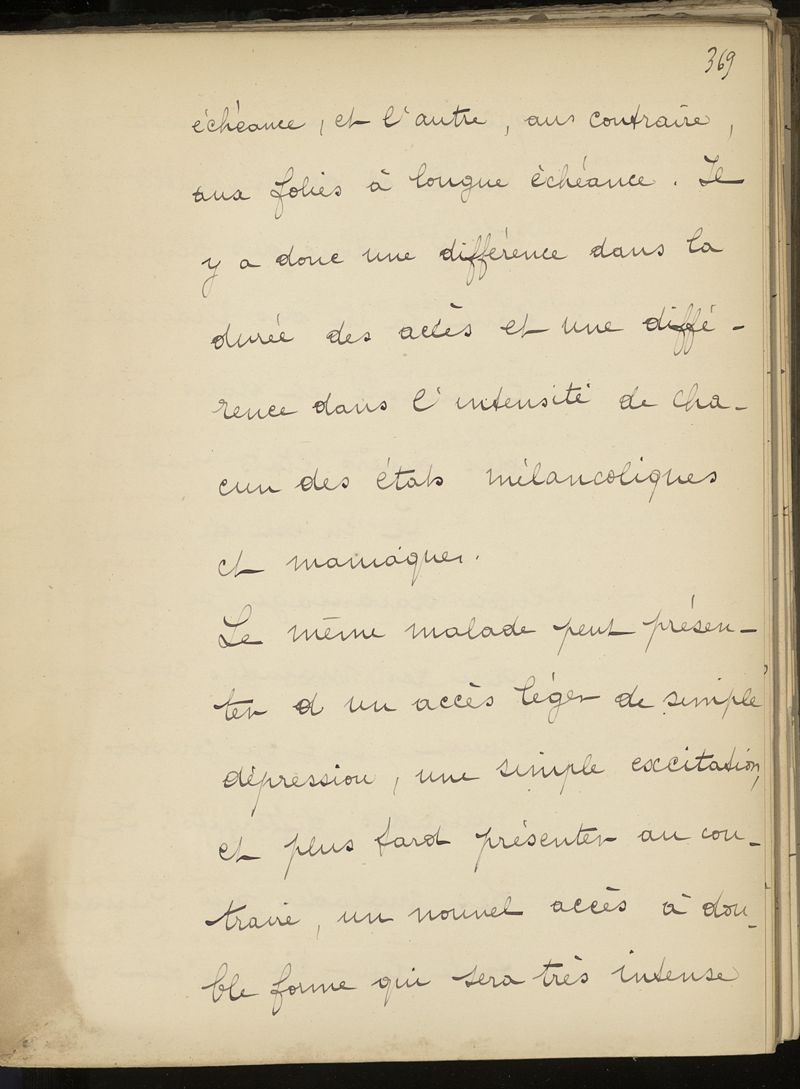 369
échéance, et l'autre, au contraire,
aux folies à longue échéance. Il
y a donc une différence dans la
durée des accès et une diffé-
rence dans l'intensité de cha-
cun des états mélancoliques
et maniaques.
Le même malade peut présen-
ter d un accès léger de simple
dépression, une simple excitation,
et plus tard présenter au con-
traire, un nouvel accès à dou-
ble forme qui sera très intense